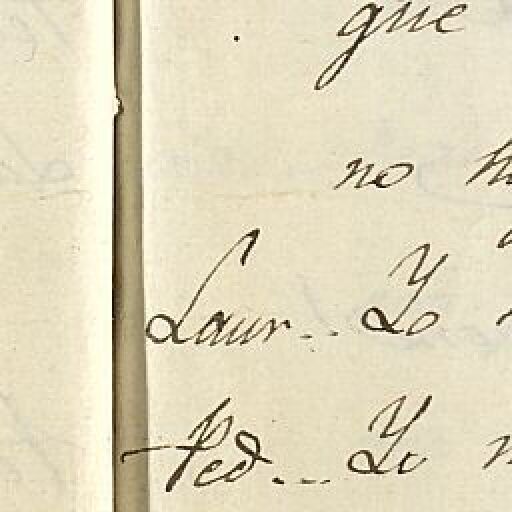 que
no
Laur... Yo
Ped... Yo